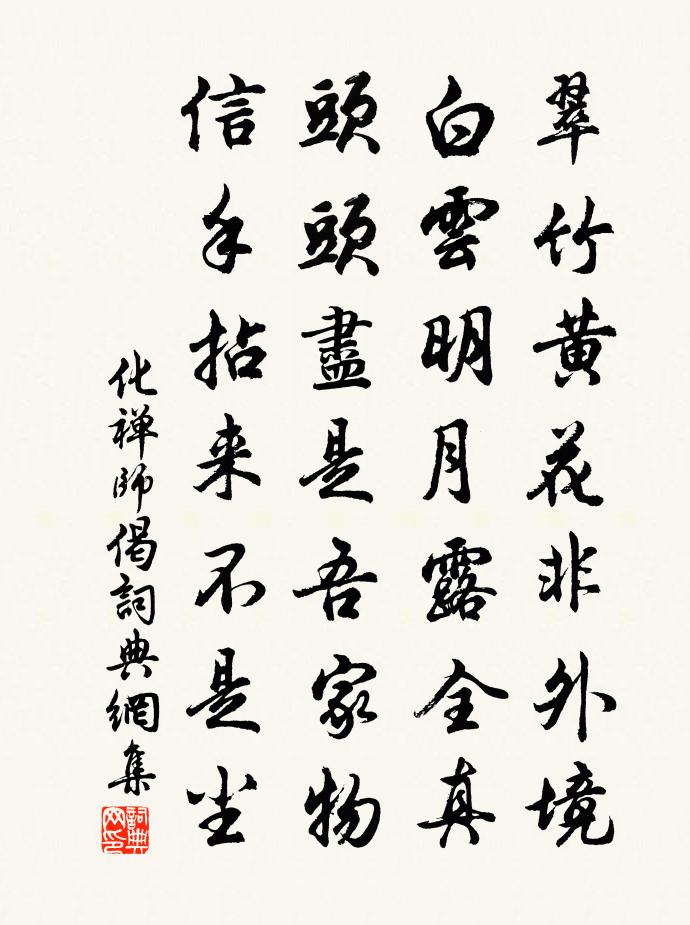 翠竹黄花非外境
白雲明月露全真
頭頭盡是吾家物
信手拈来不是尘
化禅師偈詞典網集
詞典网印